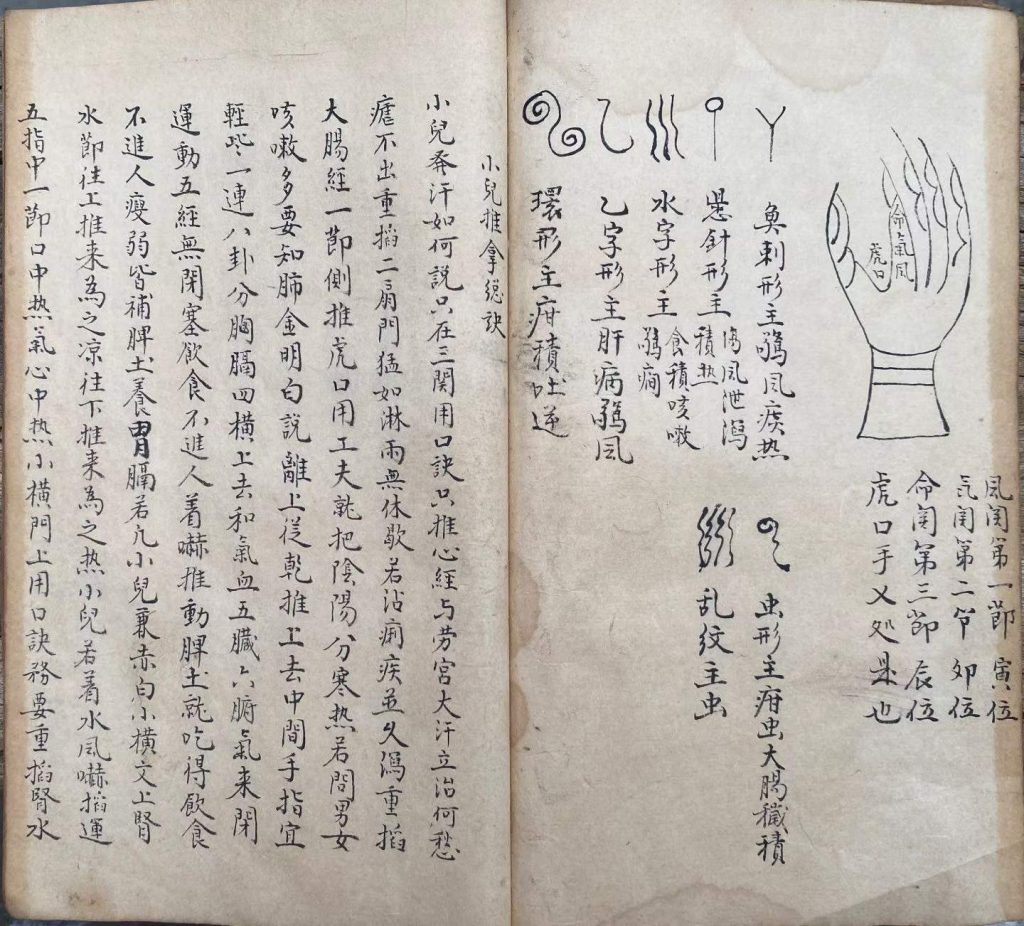 命氣風
虎口
風関第一節 寅位
気関第二节 卯位
命関第三節 辰位
虎口手叉处是也
魚刺形主驚风痰热
悬針形主 伤风泄瀉 積热
水字形主 食積咳嗽 驚癎
乙字形主肝病驚风
環形主疳積吐逆
虫形主疳虫大腸穢積
乱纹主虫
小兒推拿総訣
小兒発汗如何説只在三関用口訣只推心経与劳宫大汗立治何愁
瘧不出重掐二扇門猛如淋雨無休歇若沾痢疾並久瀉重掐
大腸經一節側推虎口用工夫就把陰陽分寒热若問男女
咳嗽多要知肺金明白説離上從乾推上去中間手指宜
輕些一連八卦分胸膈四橫上去和氣血五臟六腑氣来閉
運動五經無閉塞飲食不進人着嚇推動脾土就吃得飲食
不進人瘦弱皆補脾土養胃膈若亢小兒兼赤白小横文上腎
水節往上推来為之凉往下推来為之热小兒若着水风嚇掐運
五指中一節口中热氣心中热小横門上用口訣務要重掐腎水